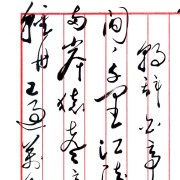 朝辭白帝
間千里江陵
兩岸猿聲
輕舟已過萬